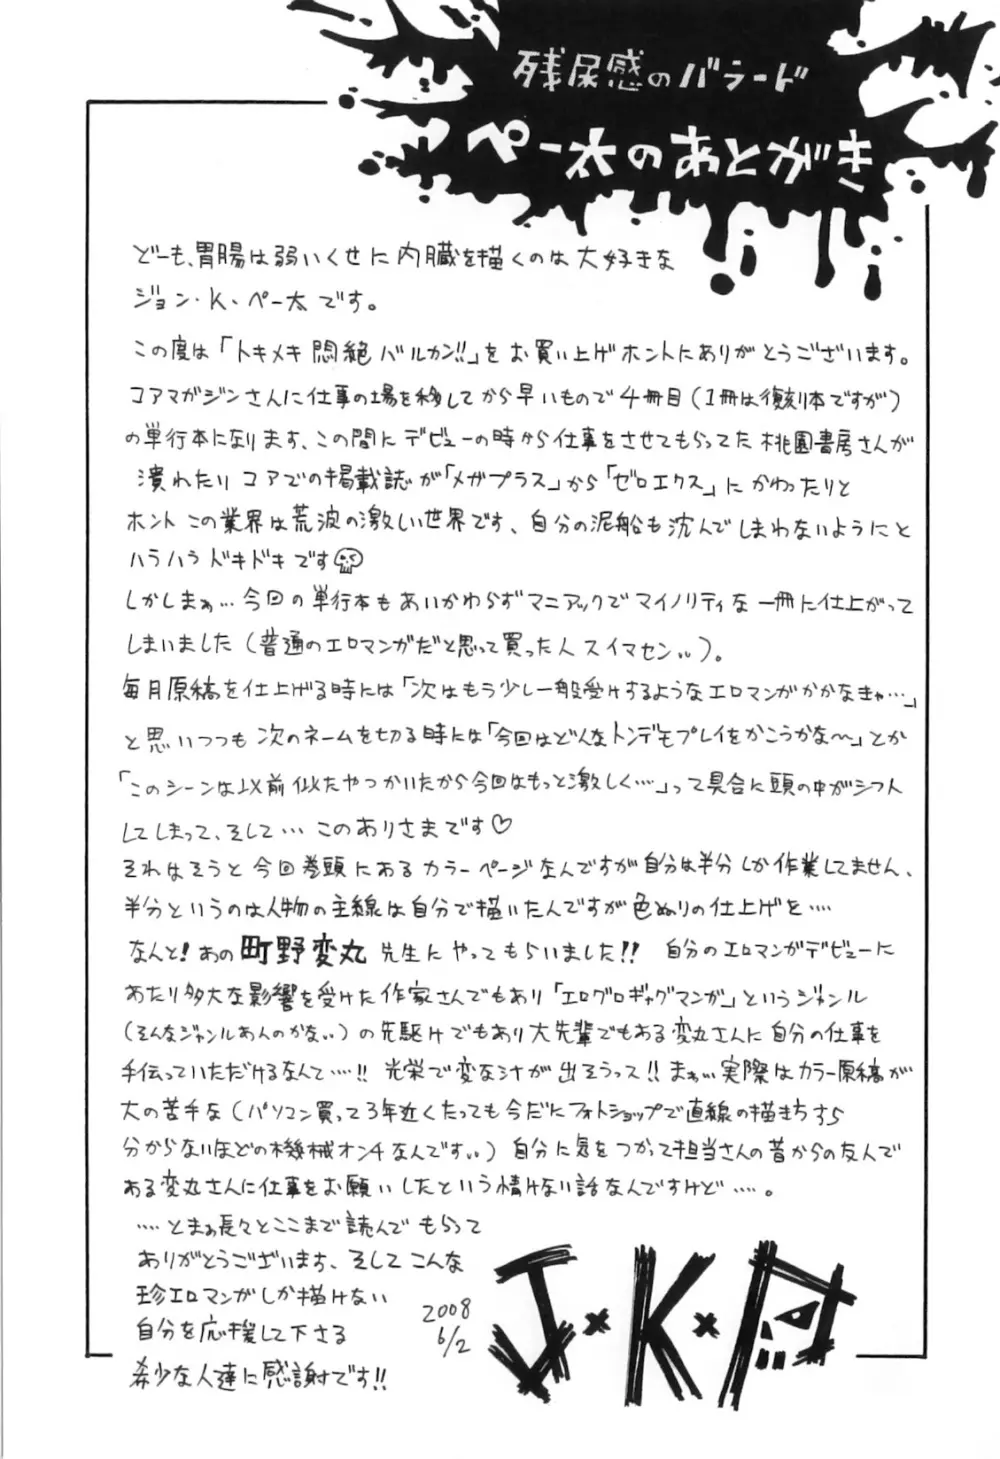 残尿感のバラード
ペー太のあとがき
どーも、胃腸は弱いくせに内臓を描くのは大好きな
ジョン・K・ペー太です。
この度は「トキメキ悶絶バルカン!!」をお買い上げホントにありがとうございます。
コアマガジンさんに仕事の場を移してから早いもので4冊目(1冊は復刻本ですが)
の単行本になります、この間にデビューの時から仕事をさせてもらってた桃園書房さんが
潰れたりコアでの掲載誌が「メガプラス」から「ゼロエクス」にかわったりと
ホントこの業界は荒波の激しい世界です、自分の泥船も沈んでしまわないようにと
ハラハラドキドキです
しかしまぁ…今回の単行本もあいかわらずマニアックでマイノリティな一冊に仕上がって
しまいました(普通のエロマンガだと思って買った人スイマセン‥)。
毎月原稿を仕上げる時には「次はもう少し一般受けするようなエロマンガかかなきゃ…」
と思いつつも次のネームを切る時には「今回はどんなトンデモプレイをかこうかな〜」とか
「このシーンは以前似たやつかいたから今回はもっと激しく…」って具合に頭の中がシフト
してしまって、そして…このありさまです♡
それはそうと今回巻頭にあるカラーページなんですが自分は半分しか作業してません、
半分というのは人物の主線は自分で描いたんですが色ぬりの仕上げを‥‥
なんと!あの町野変丸先生にやってもらいました!!自分のエロマンガデビューに
あたり多大な影響を受けた作家さんでもあり「エログロギャグマンガ」というジャンル
(そんなジャンルあんのかな‥)の先駆けでもあり大先輩でもある変丸さんに自分の仕事を
手伝っていただけるなんて‥‥!!光栄で変な汁が出そうっス!!まぁ…実際はカラー原稿が
大の苦手な(パソコン買って3年近くたっても今だにフォトショップで直線の描き方すら
分からないほどの機械オンチなんです‥)自分に気をつかって担当さんの昔からの友人で
ある変丸さんに仕事をお願いしたという情けない話なんですけど‥‥。
‥‥とまぁ長々とここまで読んでもらって
ありがとうございます、そしてこんな
珍エロマンガしか描けない
自分を応援して下さる
希少な人達に感謝です!!
2008
6/2
J・K・P